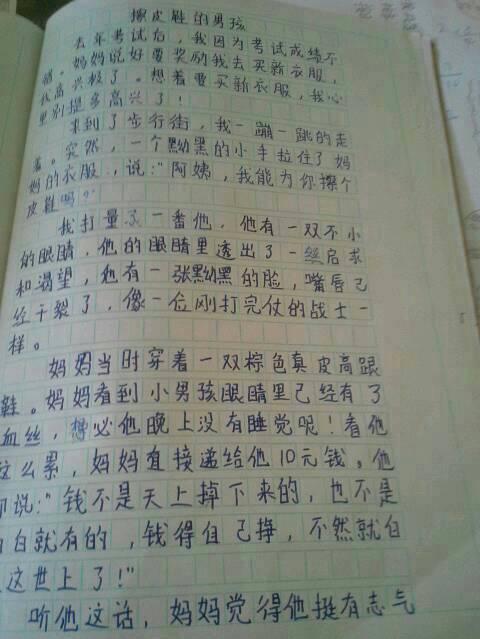 擦皮鞋的男孩
去年考试后，我因为考试成绩不
错。妈妈说好要奖励我去买新衣服，
我高兴极了。想着要买新衣服，我心
里别提多高兴了！
来到了步行街，我一蹦一跳的走
着。突然，一个黝黑的小手拉住了妈
妈的衣服，说：“阿姨，我能为你擦个
皮鞋吗？”
我打量了一番他，他有一双不小
的眼睛，他的眼睛里透出了一丝启求
和渴望，他有一张黝黑的脸，嘴唇已
经干裂了，像一位刚打完仗的战士一
样。
妈妈当时穿着一双棕色真皮高跟
鞋。妈妈看到小男孩眼睛里已经有了
血丝，想必他晚上没有睡觉呢！看他
这么累，妈妈直接递给他10元钱。他
却说：“钱不是天上掉下来的，也不是
白白就有的，钱得自己挣，不然就白
这世上了！”
听他这话，妈妈觉得他挺有志气